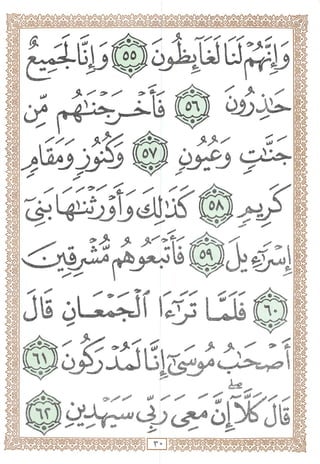 وَإِنَّهُمْ لَنَا لَغَائِظُونَ ٥٥ وَإِنَّا لَجَمِيعٌ
حَاذِرُونَ ٥٦ فَأَخْرَجْنَاهُم مِّن
جَنَّاتٍ وَعُيُونٍ ٥٧ وَكُنُوزٍ وَمَقَامٍ
كَرِيمٍ ٥٨ كَذَٰلِكَ وَأَوْرَثْنَاهَا بَنِىٓ
إِسْرَٰٓءِيلَ ٥٩ فَأَتْبَعُوهُم مُّشْرِقِينَ
٦٠ فَلَمَّا تَرَٰٓءَا ٱلْجَمْعَانِ قَالَ
أَصْحَٰبُ مُوسَىٰٓ إِنَّا لَمُدْرَكُونَ ٦١
قَالَ كَلَّآ ۖ إِنَّ مَعِىَ رَبِّى سَيَهْدِينِ ٦٢
٣٠